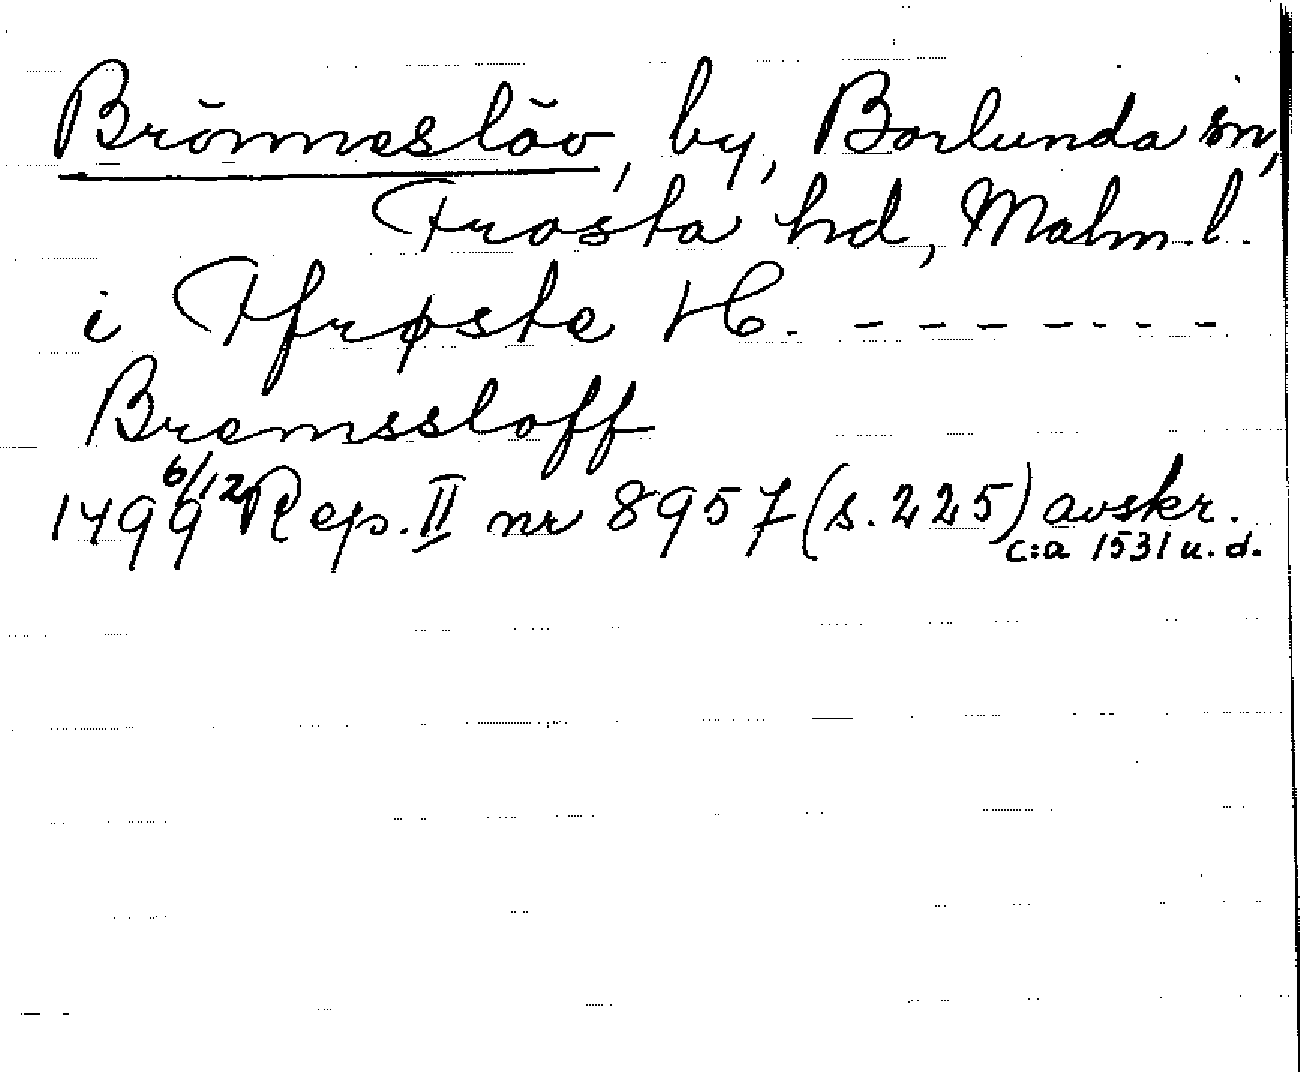 Brönneslöv, by, Borlunda sn,
Frosta hd, Malm. l.
i Ffrøste H. - - - - - - -
Bremssloff
1499 6/12 Rep. II nr 8957 (s. 225) avskr.
c:a 1531 u. d.